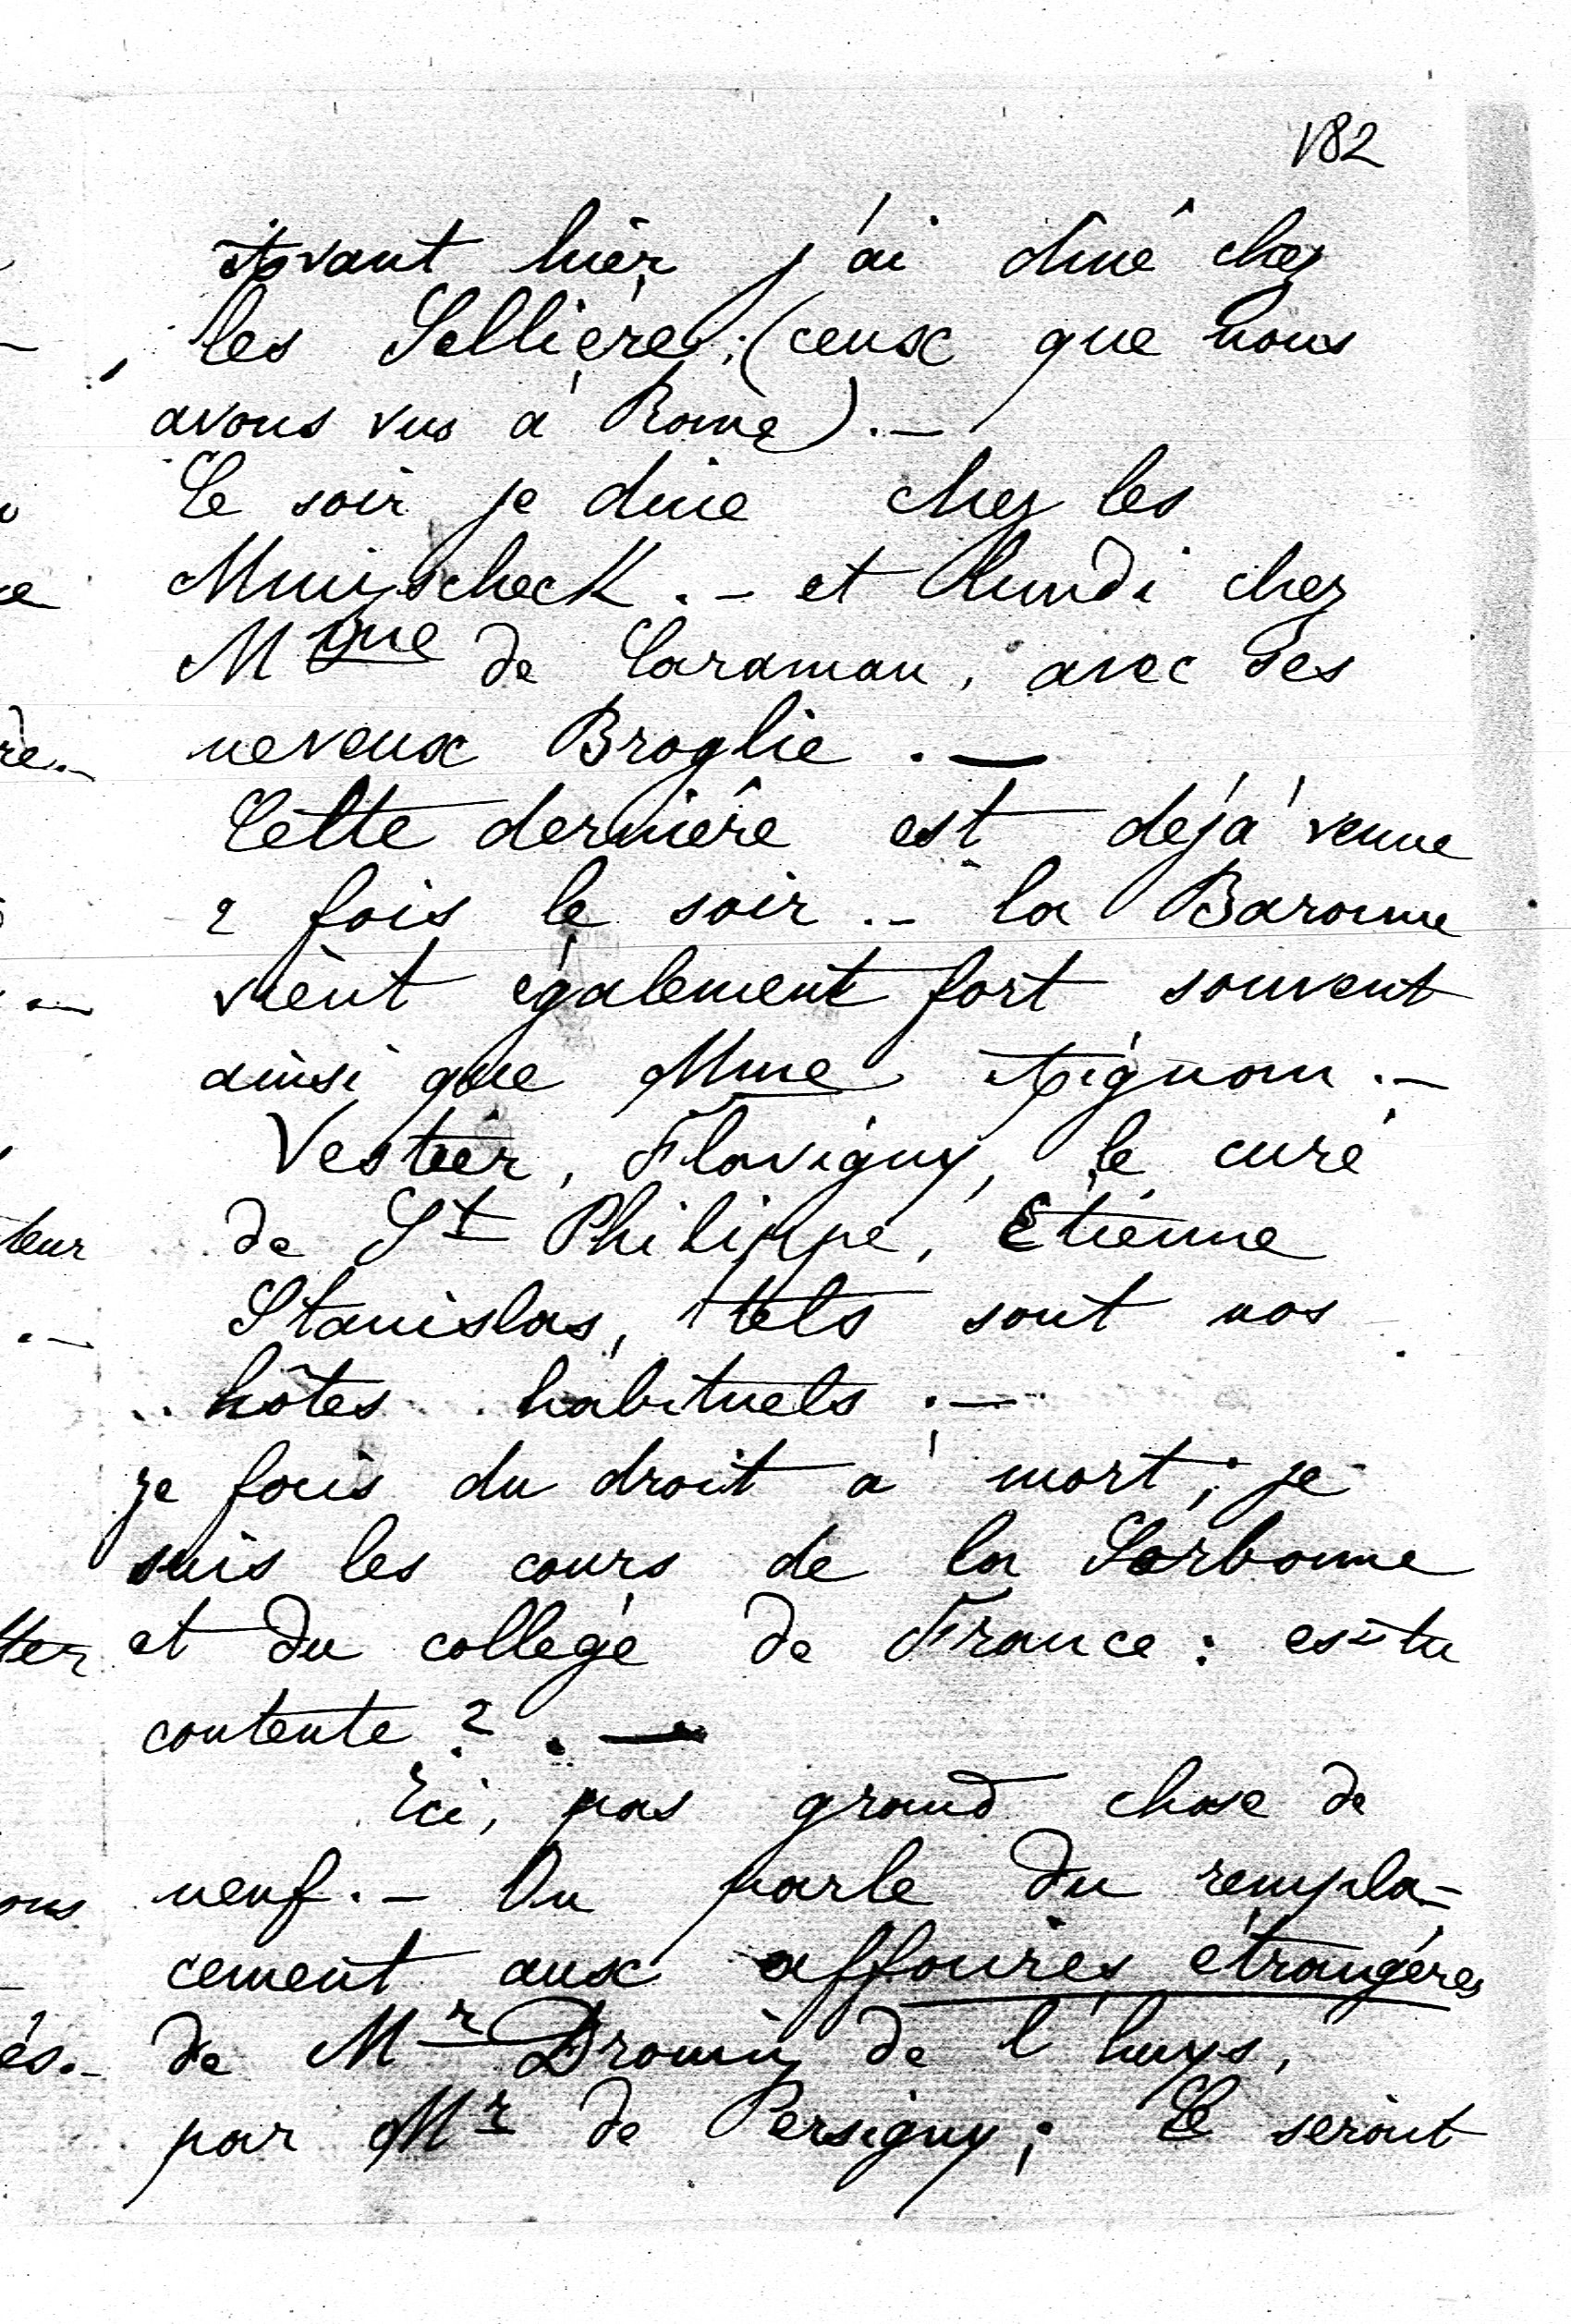 182
Avant hier j'ai diné chez
les Sellière, (ceux que nous
avons vus à Rome). —
Ce soir je dine chez les
. — et Lundi chez
Mme de Caraman, avec ses
neveux Broglie. —
Cette dernière est déjà venue
2 fois le soir. — la Baronne
vient également fort souvent
ainsi que Mme Aignom. —
Vestier, Flavigny, le curé
de St Philippe, Etienne
Stanislas, tels sont nos
hôtes habituels. —
je fais du droit à mort; je
suis les cours de la Sorbonne
et du collège de France: es-tu
contente? . —
Ici, pas grand chose de
neuf. — On parle du rempla-
cement aux affaires étrangères
de Mr Drouin de l'huys,
par Mr de Persigny; Ce serait